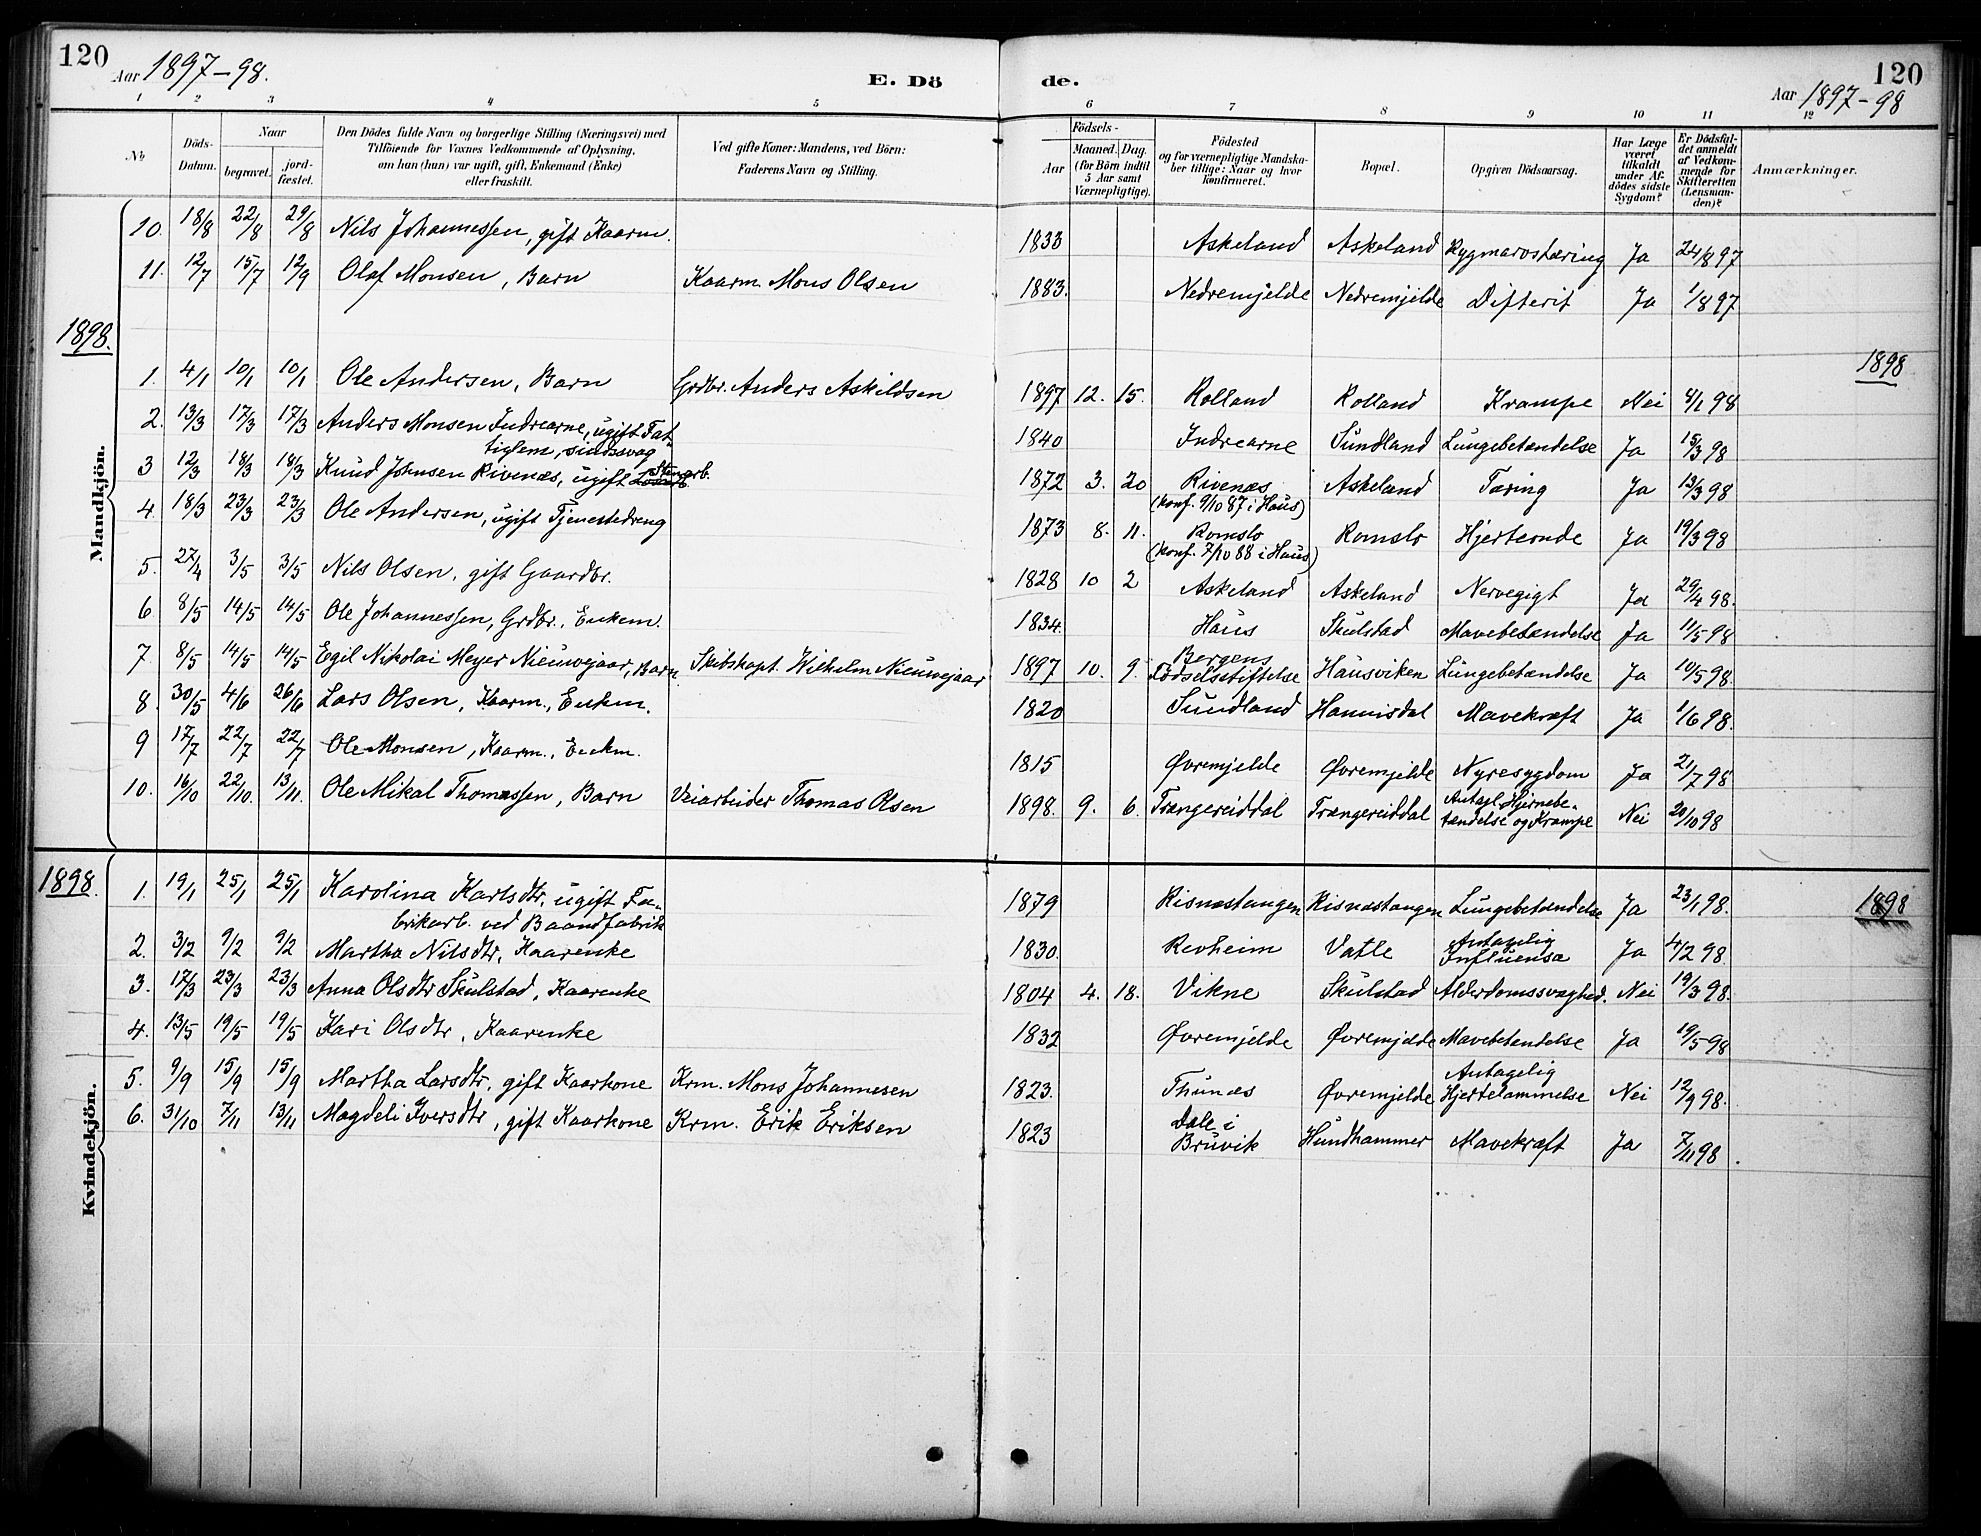 120 Aar 1897-98. E. Dö de. Aar 1897-98 120
1 2 3 4 5 6 7 8 9 10 11 12
№ Döds-Datum. Naar begravet. jord-fæstet. Den Dödes fulde Navn og borgerlige Stilling (Næringsvei) med Tilföiende for Voxnes Vedkommende af Oplysning, om han (hun) var ugift, gift, Enkemand (Enke) eller fraskilt. Ved gifte Koner: Mandens, ved Börn: Faderens Navn og Stilling. Födsels- Aar Maaned. Dag. (for Börn indtil 5 Aar samt Værnepligtige). Födested og for værnepligtige Mandskaber tillige: Naar og hvor konfirmeret. Bopæl. Opgiven Dödsaarsag. Har Læge været tilkaldt under Afdödes sidste Sygdom? Er Dödsfaldet anmeldt af Vedkommende for Skifteretten (Lensmanden)? Anmærkninger.
Mandkjön.
10. 18/8 22/8 29/8 Nils Johannessen, gift Kaarm. 1833 Askeland Askeland Rygmarvstæring Ja 24/8 97
11. 12/7 15/7 12/9 Olaf Monsen, Barn Kaarm. Mons Olsen 1883. Nedremjelde Nedremjelde Difterit Ja 1/8 97
1898. 1898
1. 4/1 10/1 10/1 Ole Andersen, Barn Grdbr. Anders Askildsen 1897 12. 15. Rolland Rolland Krampe Nei 8/1 98
2. 13/3 17/3 17/3 Anders Monsen Indrearne, ugift Fat- 1840 Indrearne Sundland Lungebetændelse Ja 15/3 98
tiglem, sindssvag
3 12/3 18/3 18/3 Knud Johnsen Rivenæs, ugift Stenarb. 1872 3. 20 Rivenæs Askeland Tæring Ja 13/3 98
(konf. 9/10 87 i Haus)
4. 18/3 23/3 23/3 Ole Andersen, ugift Tjenestedreng 1873 8. 11. Romslo Romslo Hjerteonde Ja 19/3 98
(konf. 7/10 88 i Haus)
5. 27/4 3/5 3/5 Nils Olsen, gift Gaardbr. 1828 10 2 Askeland Askeland Nervegigt Ja 29/4 98.
6 8/5 14/5 14/5 Ole Johannessen, Grdbr., Enkem. 1834. Haus Skulstad Mavebetændelse Ja 11/5 98
7. 8/5 14/5 14/5 Egil Nikolai Meyer Nieuwejaar, Barn. Skibskapt. Wilhelm Nieuwejaar 1897 10. 9. Bergens Födselsstiftelse Hausviken Lungebetændelse Ja 10/5 98.
8. 30/5 4/6 26/6 Lars Olsen, Kaarm., Enkm. 1820 Sundland Hannisdal Mavekræft Ja 1/6 98.
9 17/7 22/7 22/7 Ole Monsen, Kaarm., Enkm. 1815 Øvremjelde Øvremjelde Nyresygdom Ja 21/7 98
10. 16/10 22/10. 13/11. Ole Mikal Thomassen, Barn Veiarbeider Thomas Olsen 1898. 9. 6. Trangereiddal Trangereiddal Antagl. Hjernebe-tændelse og Krampe Nei 20/10 98
Kvindekjön.
1898. 1898
1. 19/1 25/1 25/1 Karolina Karlsdtr, ugift Fa- 1879 Risnæstangen Risnæstangen Lungebetændelse Ja 23/1 98.
brikarb. ved Baandfabrik
2. 3/2 9/2 9/2 Martha Nilsdtr, Kaarenke 1830. Revheim Vatle Antagelig Influensa Ja 4/2 98.
3. 17/3 23/3 23/3 Anna Olsdtr Skulstad, Kaarenke 1804 4. 18. Vikne Skulstad Alderdomssvaghed. Nei 19/3 98.
4. 13/5 19/5 19/5 Kari Olsdtr, Kaarenke 1832 Øvremjelde Øvremjelde Mavebetændelse Ja 19/5 98
5. 9/9 15/9 15/9 Martha Larsdtr, gift Kaarkone Krm. Mons Johannesen 1823. Thunæs Øvremjelde Antagelig Hjertelammelse Nei 12/9 98.
6. 31/10 7/11 13/11 Magdeli Iversdtr, gift Kaarkone Krm. Erik Eriksen 1823 Dale i Bruvik Hundhammer Mavekræft Ja 7/11 98.